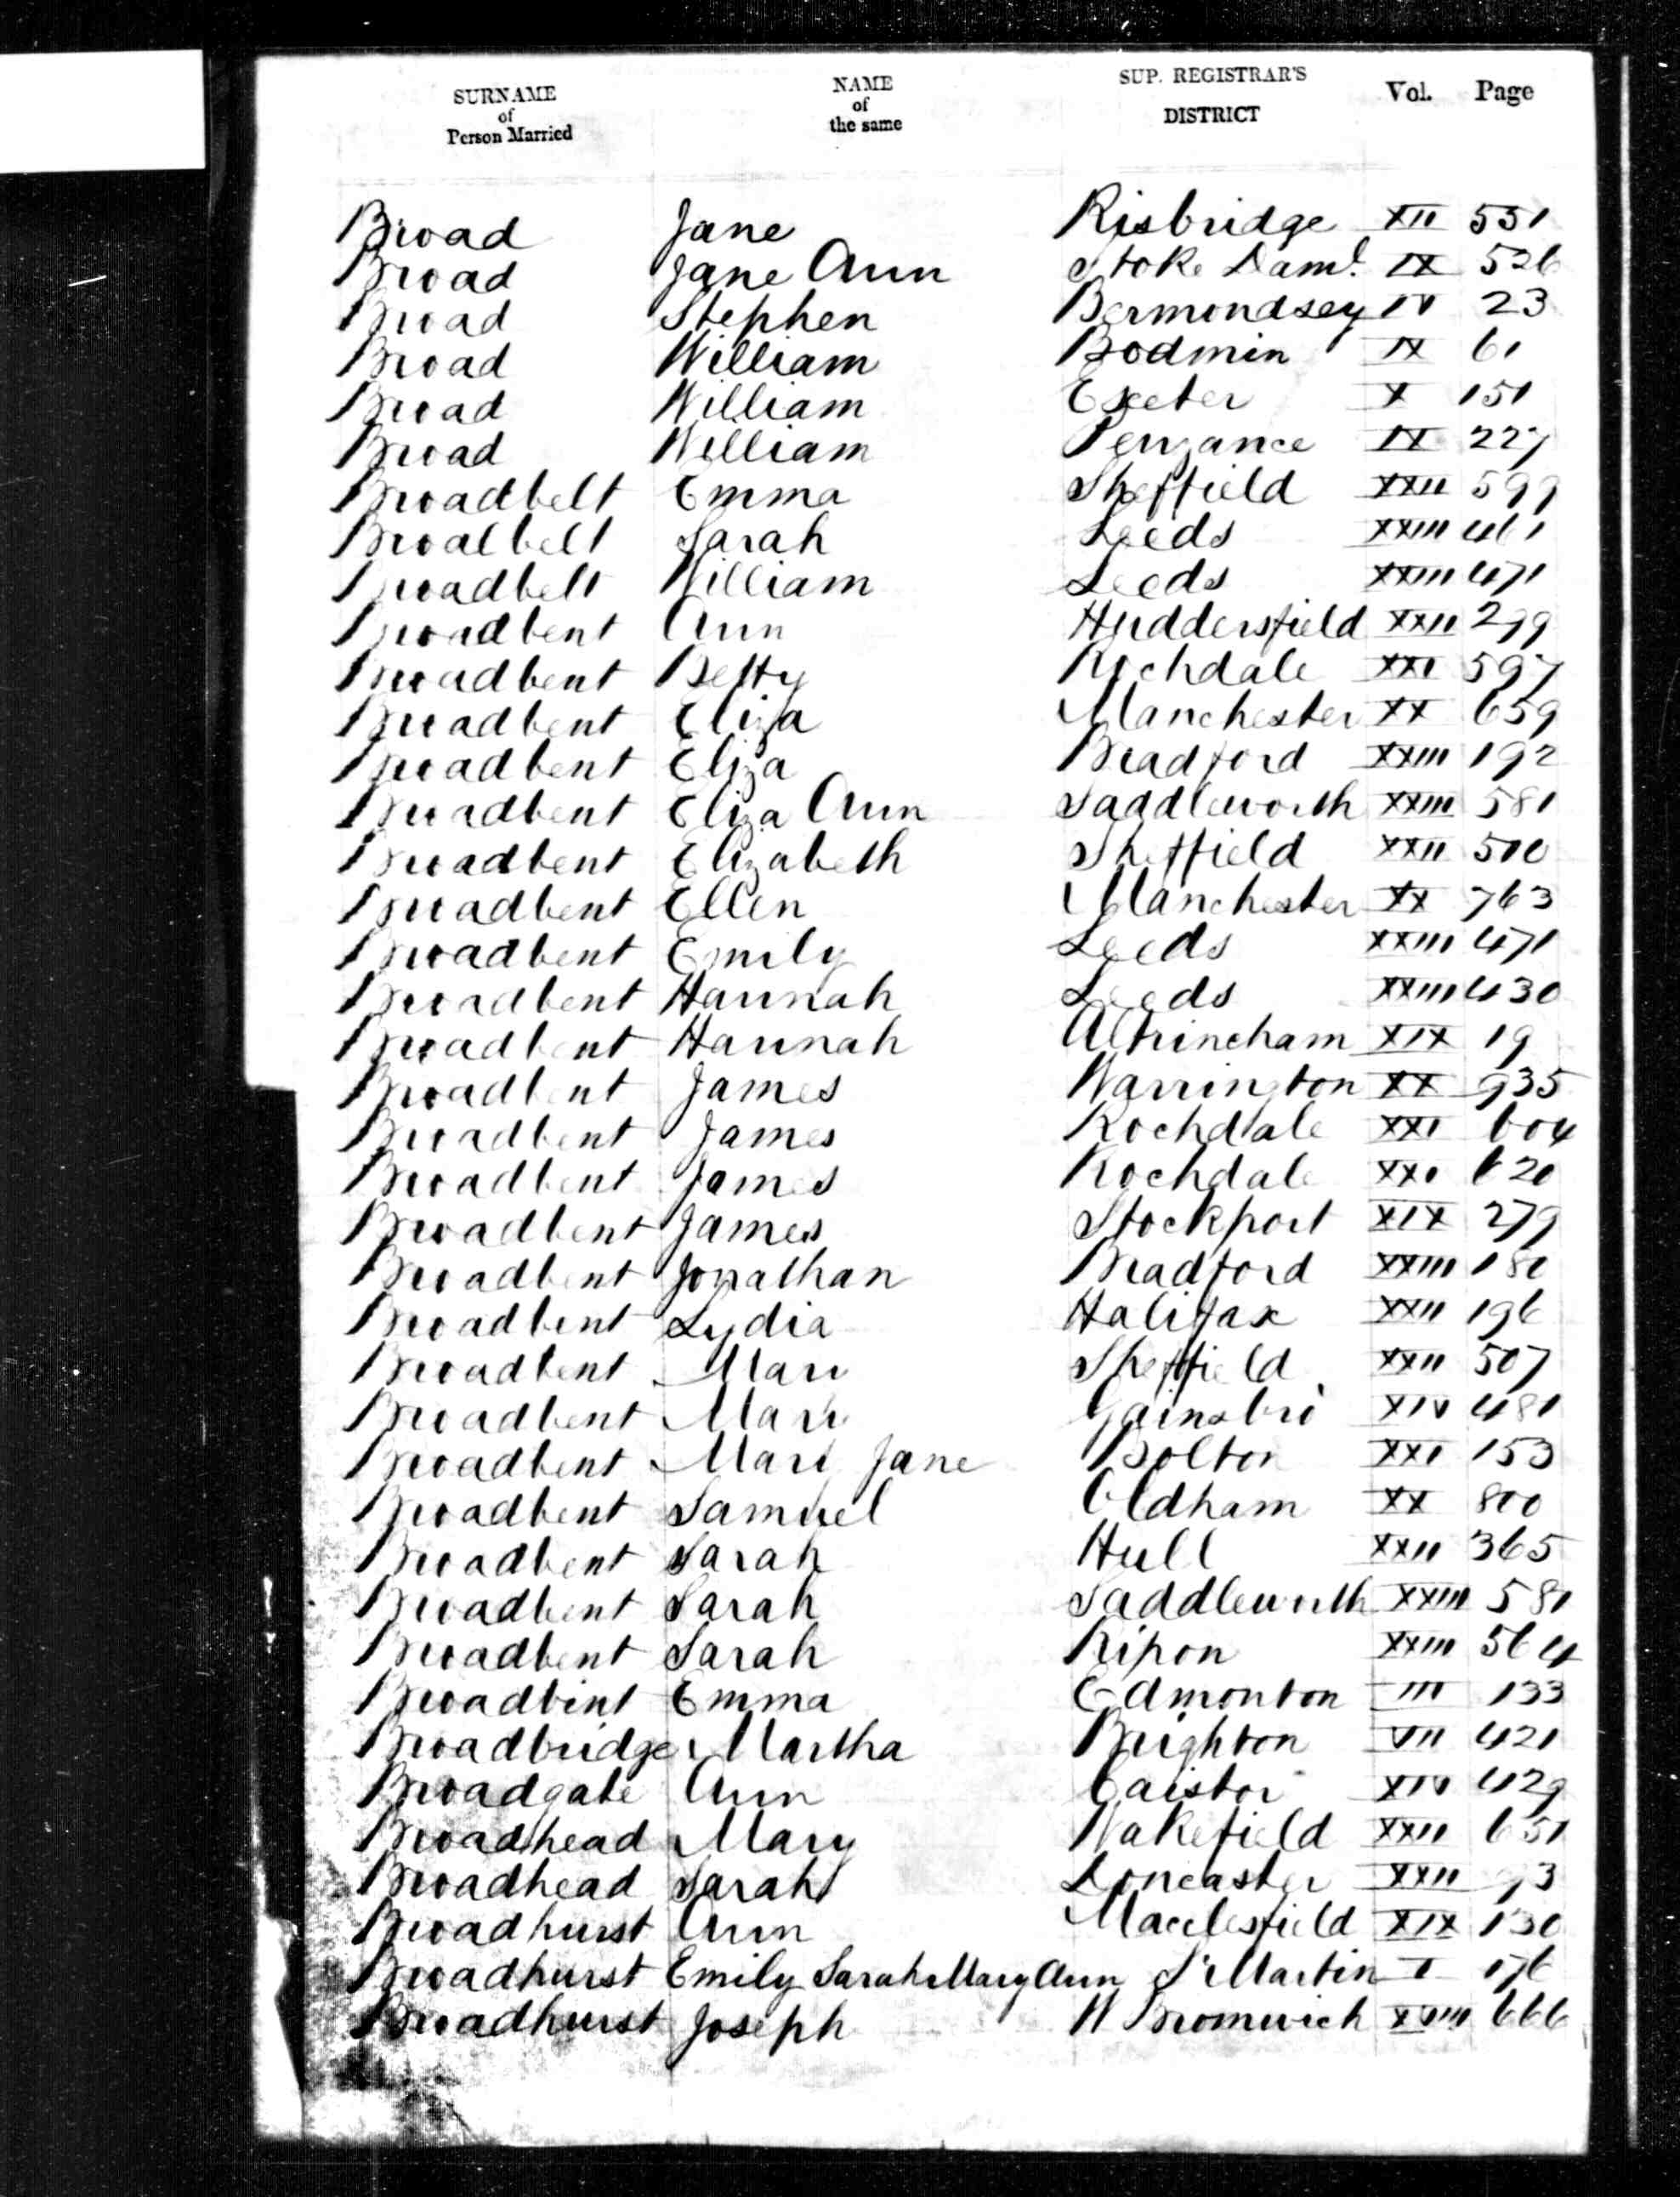 SURNAME of Person Married NAME of the same SUP. REGISTRAR'S DISTRICT Vol. Page
Broad Jane Risbridge XII 531
Broad Jane Ann Stoke Daml. IX 526
Broad Stephen Bermondsey IV 23
Broad William Bodmin IX 61
Broad William Exeter X 151
Broad William Penzance IX 227
Broadbelt Emma Sheffield XXII 599
Broadbelt Sarah Leeds XXIII 461
Broadbelt William Leeds XXIII 471
Broadbent Ann Huddersfield XXII 299
Broadbent Betty Rochdale XXI 597
Broadbent Eliza Manchester XX 659
Broadbent Eliza Bradford XXIII 192
Broadbent Eliza Ann Saddleworth XXIII 581
Broadbent Elizabeth Sheffield XXII 500
Broadbent Ellen Manchester XX 763
Broadbent Emily Leeds XXIII 471
Broadbent Hannah Leeds XXIII 430
Broadbent Hannah Altrincham XIX 19
Broadbent James Warrington XX 935
Broadbent James Rochdale XXI 604
Broadbent James Rochdale XXI 620
Broadbent James Stockport XIX 279
Broadbent Jonathan Bradford XXIII 180
Broadbent Lydia Halifax XXII 196
Broadbent Mary Sheffield XXII 507
Broadbent Mary Gainsbro' XIV 481
Broadbent Mary Jane Bolton XXI 153
Broadbent Samuel Oldham XX 800
Broadbent Sarah Hull XXII 365
Broadbent Sarah Saddleworth XXIII 581
Broadbent Sarah Ripon XXIII 564
Broadbint Emma Edmonton III 133
Broadbridge Martha Brighton VII 421
Broadgate Ann Caistor XIV 429
Broadhead Mary Wakefield XXII 651
Broadhead Sarah Doncaster XXII 93
Broadhurst Ann Macclesfield XIX 130
Broadhurst Emily Sarah Mary Ann St Martin I 176
Broadhurst Joseph W Bromwich XVIII 666